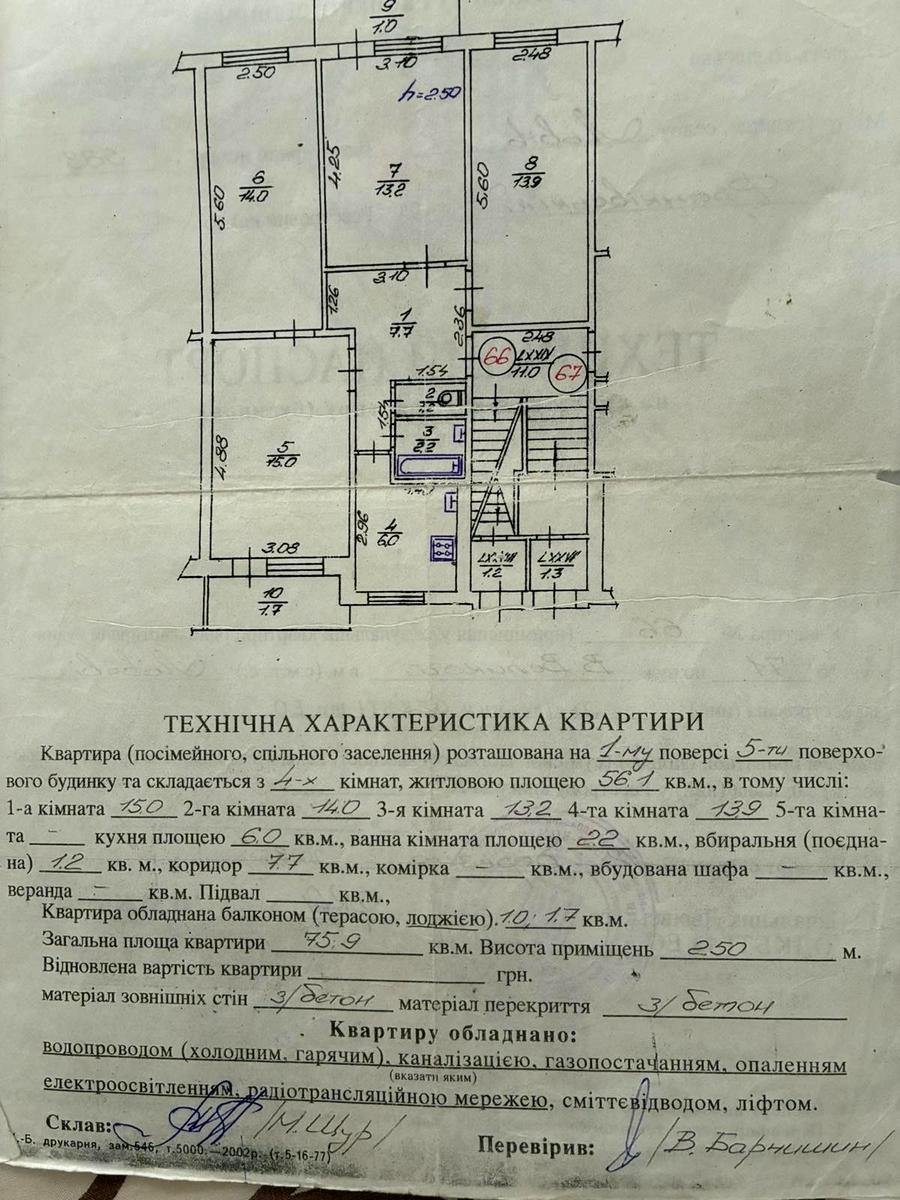 9
1.0
2.50
3.10
2.48
h=2.50
4.25
6
14.0
7
13.2
8
13.9
5.60
5.60
3.10
1.26
1
7.7
2.36
2.48
66
LXXIV
11.0
67
1.54
2
1.54
3
2.2
4.88
5
15.0
2.96
4
6.0
3.08
1.2
LXXVI
1.3
10
1.7
ТЕХНІЧНА ХАРАКТЕРИСТИКА КВАРТИРИ
Квартира (посімейного, спільного заселення) розташована на 1-му поверсі 5-ти поверхо-
вого будинку та складається з 4-х кімнат, житловою площею 56.1 кв.м., в тому числі:
1-а кімната 15.0 2-га кімната 14.0 3-я кімната 13.2 4-та кімната 13.9 5-та кімна-
та — кухня площею 6.0 кв.м., ванна кімната площею 2.2 кв.м., вбиральня (поєдна-
на) 1.2 кв. м., коридор 7.7 кв.м., комірка — кв.м., вбудована шафа — кв.м.,
веранда — кв.м. Підвал кв.м.,
Квартира обладнана балконом (терасою, лоджією). 1.0; 1.7 кв.м.
Загальна площа квартири 75.9 кв.м. Висота приміщень 2.50 м.
Відновлена вартість квартири грн.
матеріал зовнішніх стін з/бетон матеріал перекриття з/бетон
Квартиру обладнано:
водопроводом (холодним, гарячим), каналізацією, газопостачанням, опаленням
(вказати яким)
електроосвітленням, радіотрансляційною мережею, сміттєвідводом, ліфтом.
Склав: /М. Щур/ Перевірив: /В. Барнишин/
.-Б. друкарня, зам. 546, т. 5000. — 2002р. (т. 5-16-77)